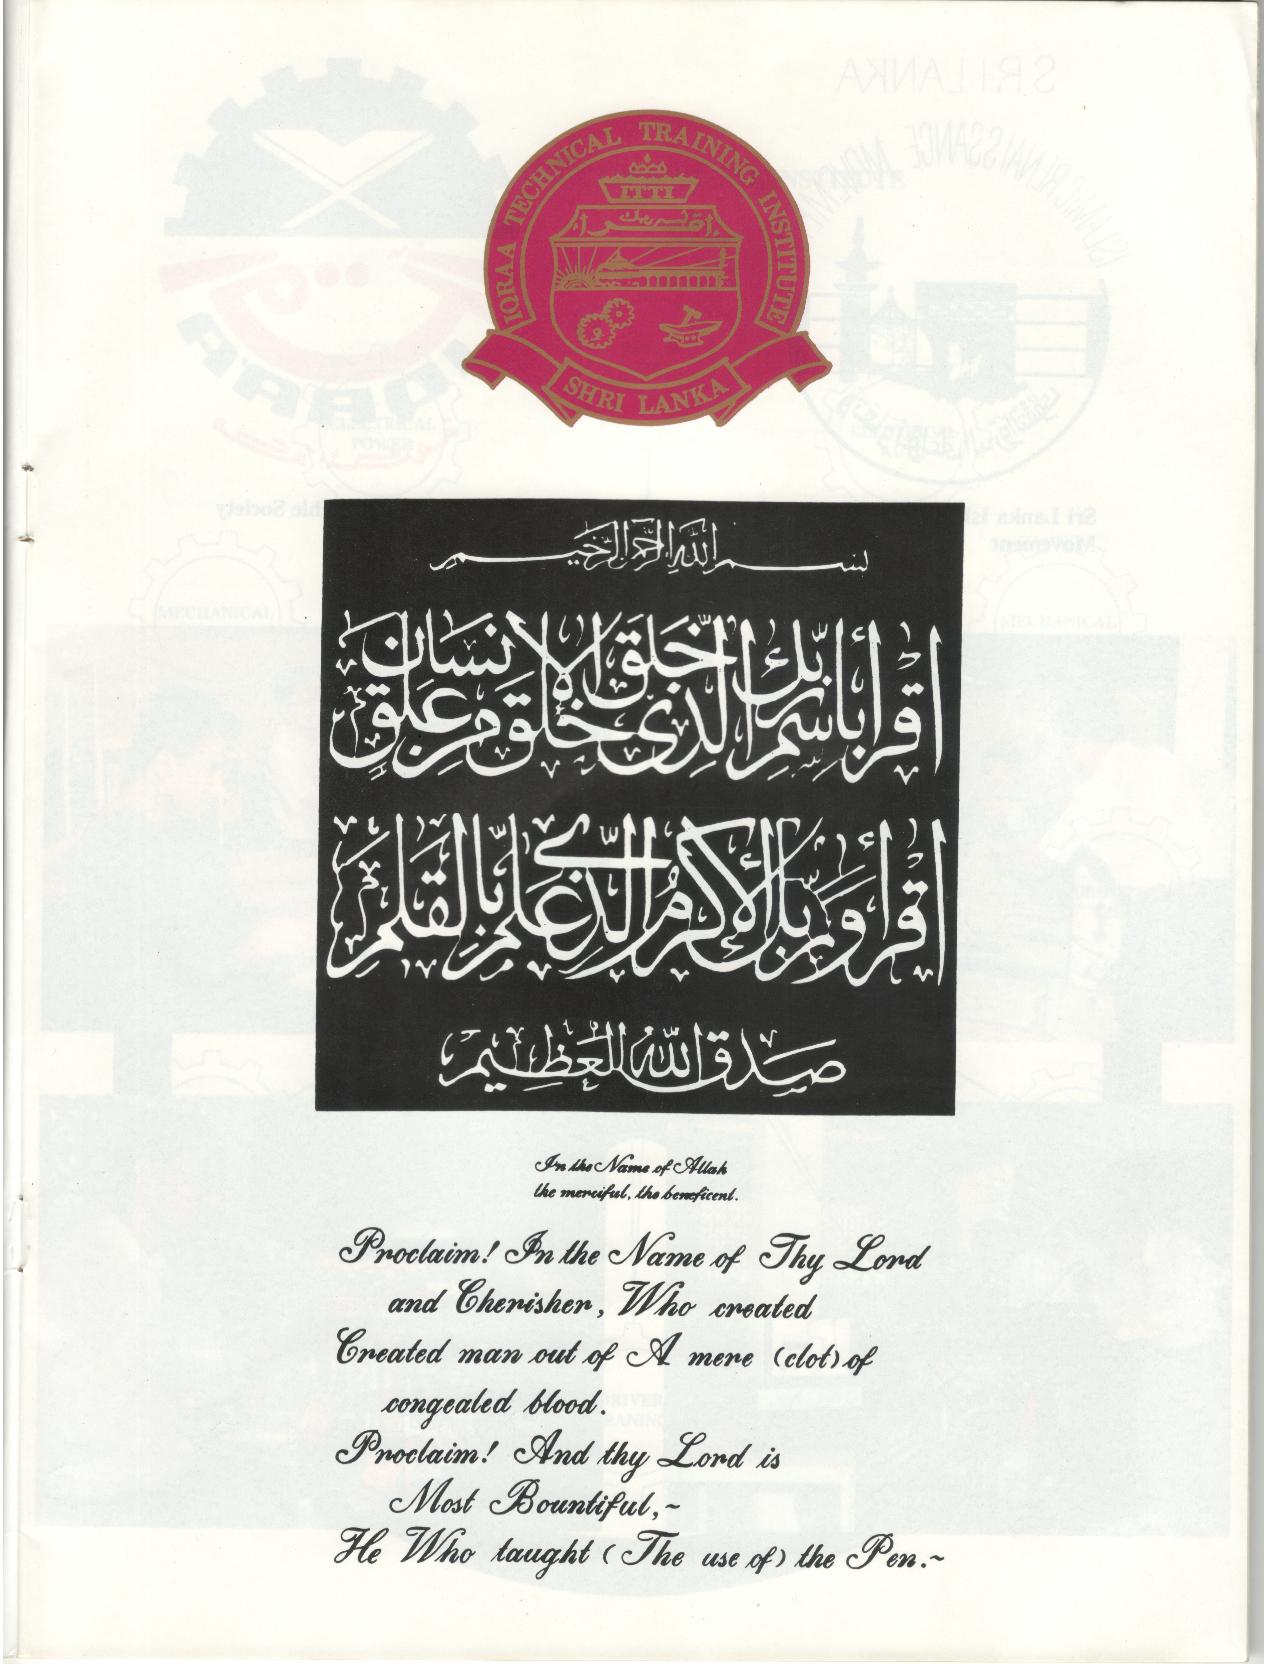 IQRAA TECHNICAL TRAINING INSTITUTE
ITTI
اقرأ باسم ربك
SHRI LANKA
بسم الله الرحمن الرحيم
اقرأ باسم ربك الذي خلق خلق الإنسان من علق
اقرأ وربك الأكرم الذي علم بالقلم
صدق الله العظيم
In the Name of Allah
the merciful, the beneficent.
Proclaim! In the Name of Thy Lord
and Cherisher, Who created
Created man out of A mere (clot) of
congealed blood.
Proclaim! And thy Lord is
Most Bountiful,~
He Who taught (The use of) the Pen.~